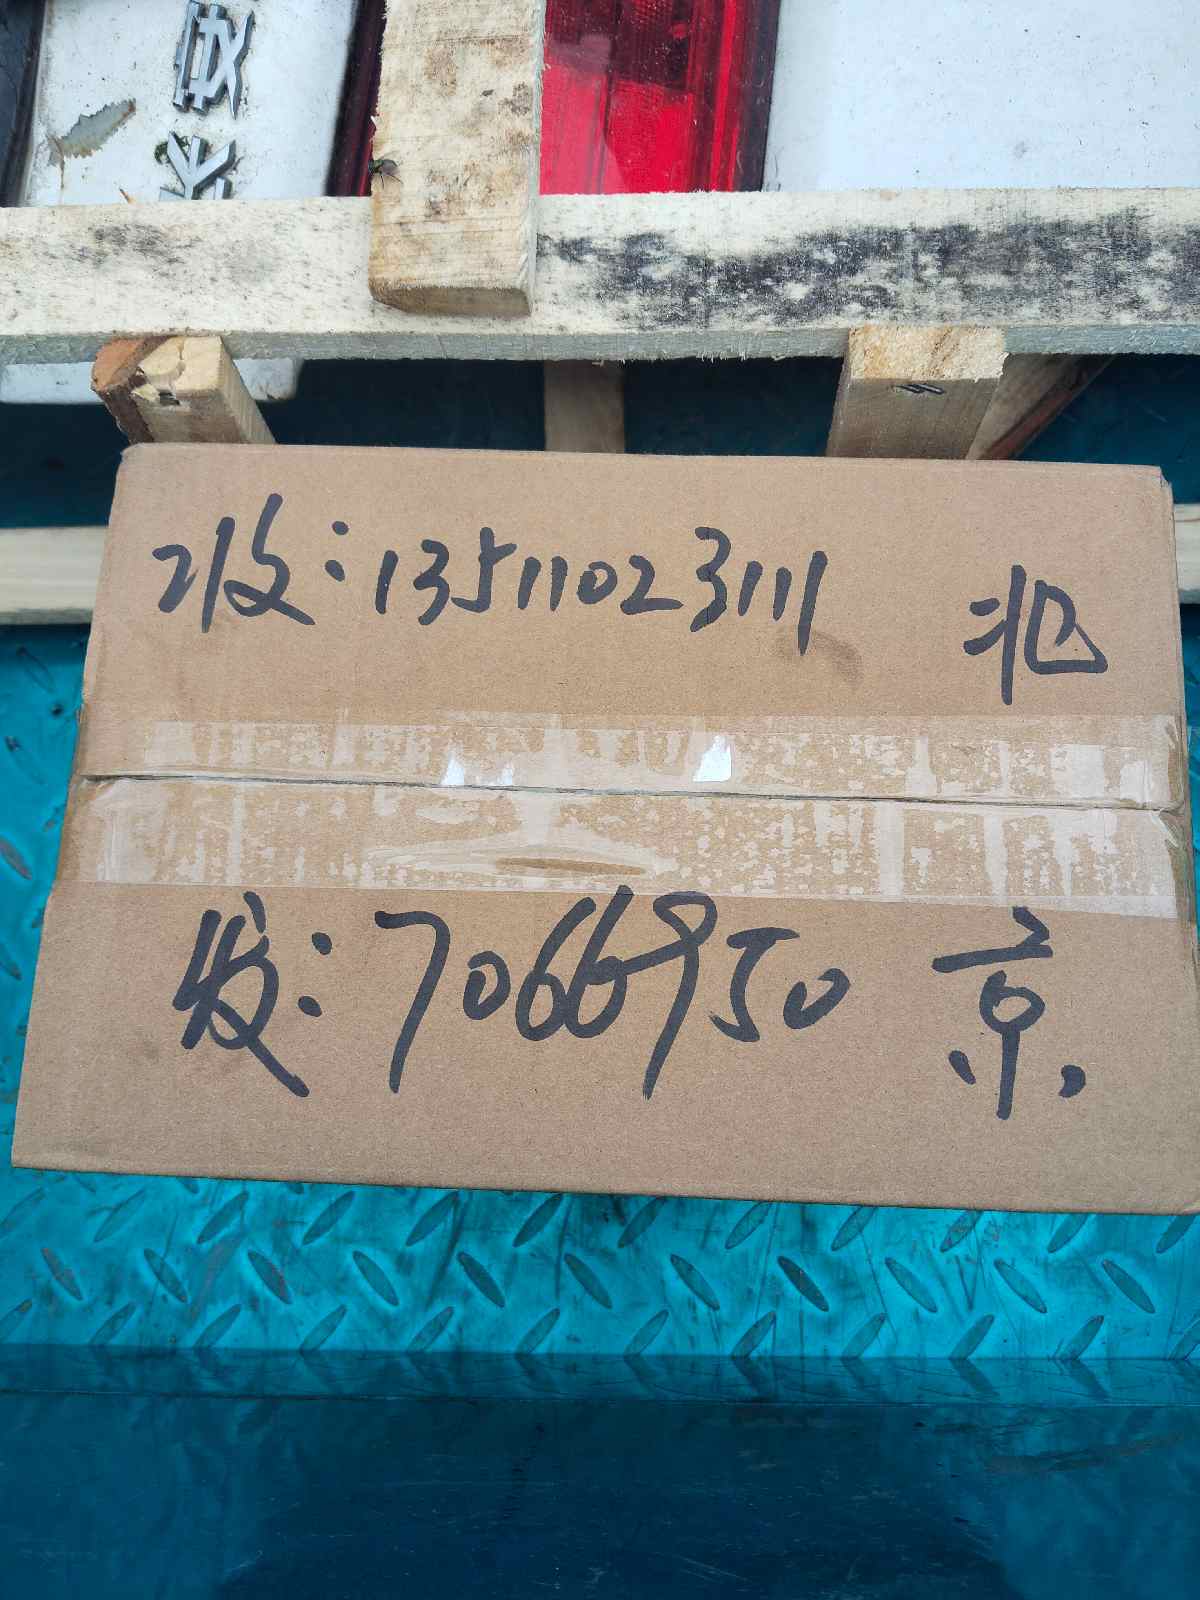 收：13511023111 北
发：7066950 京